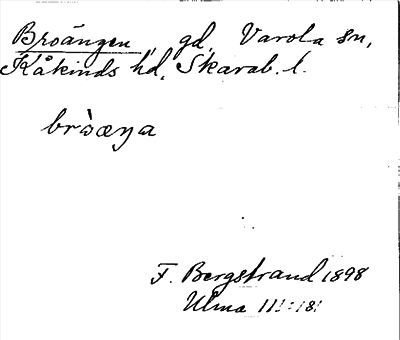 Broängen, gd, Varola sn,
Kåkinds hd, Skarab. l.
bròæŋa
F. Bergstrand 1898
Ulma 111:18